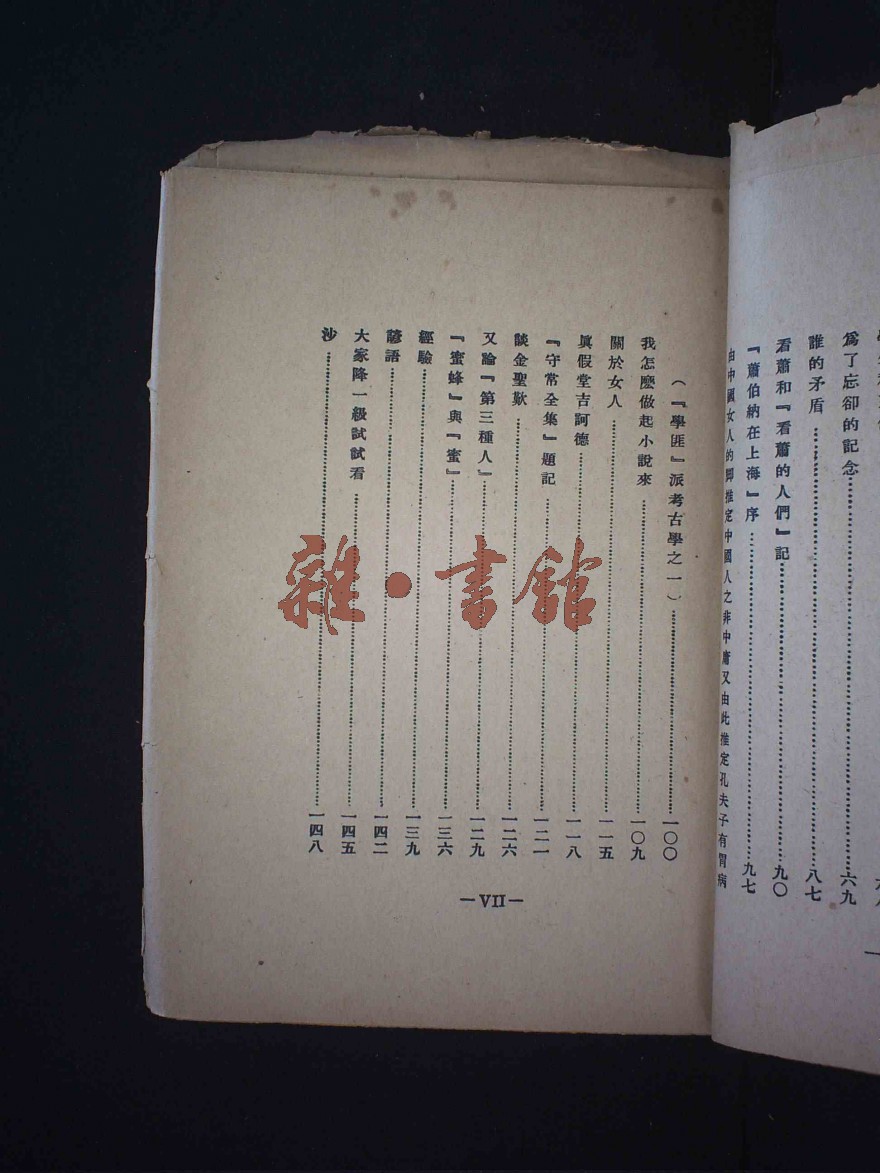 爲了忘卻的記念……六九
誰的矛盾……八七
看蕭和『看蕭的人們』記……九〇
『蕭伯納在上海』序……九七
由中國女人的脚推定中國人之非中庸又由此推定孔夫子有胃病
(『學匪』派考古學之一)……一〇〇
我怎麽做起小說來……一〇九
關於女人……一一五
眞假堂吉訶德……一一八
『守常全集』題記……一二一
談金聖歎……一二六
又論『第三種人』……一二九
『蜜蜂』與『蜜』……一三六
經驗……一三九
諺語……一四二
大家降一級試試看……一四五
沙……一四八
—VII—
雜·書館